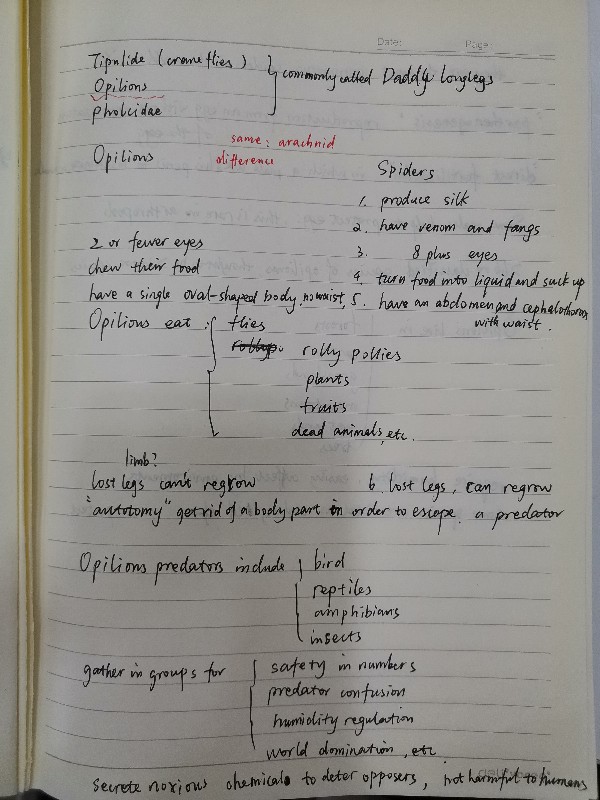 Date: Page
Tipulide (crane flies)
Opilions
pholcidae
commonly called Daddy longlegs
same: arachnid
Opilions difference
Spiders
1. produce silk
2. have venom and fangs
2 or fewer eyes 3. 8 plus eyes
chew their food 4. turn food into liquid and suck up
have a single oval-shaped body, no waist, 5. have an abdomen and cephalothorax
with waist.
Opilious eat: flies
rolly pollies
plants
fruits
dead animals, etc.
limb?
lost legs can't regrow 6. lost legs, can regrow
"autotomy" get rid of a body part in order to escape a predator
Opilions predators include bird
reptiles
amphibians
insects
gather in groups for safety in numbers
predator confusion
humidity regulation
world domination, etc
secrete noxious chemicals to deter opposers, not harmful to humans